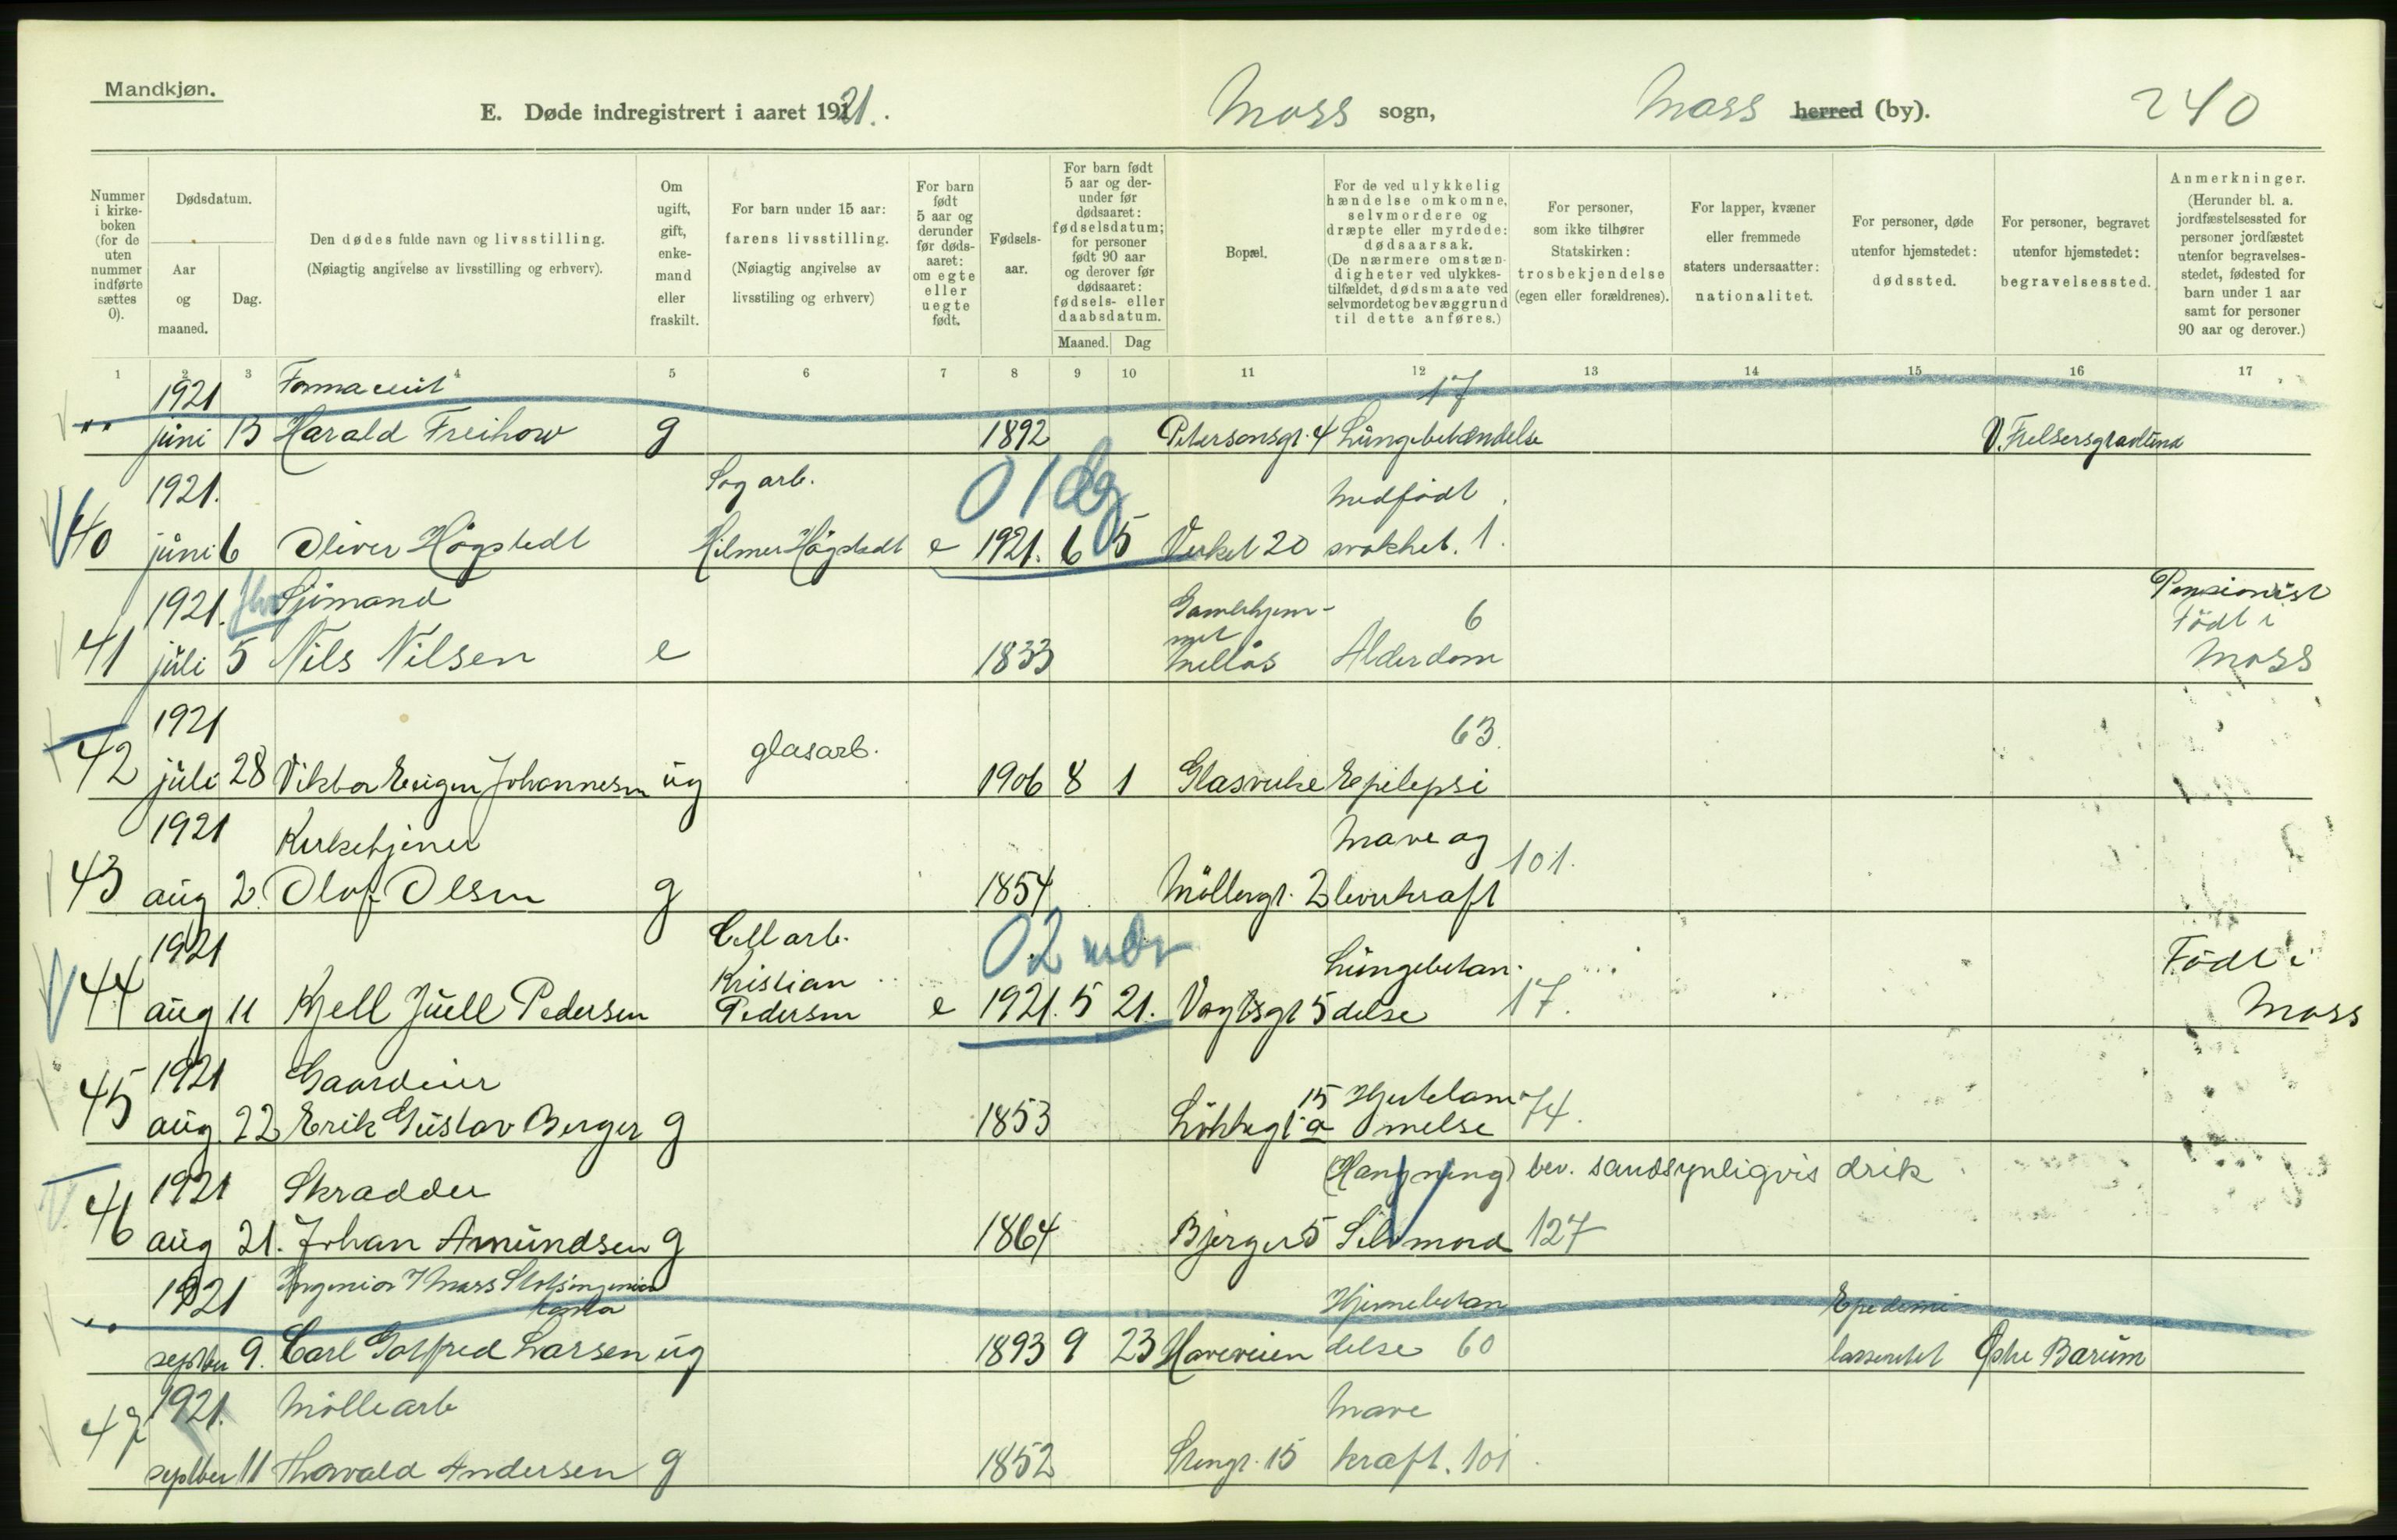 Mandkjøn.
E. Døde indregistrert i aaret 1921.
Moss sogn,
Moss herred (by).
240
Nummer i kirke-boken (for de uten nummer indførte sættes 0).
Dødsdatum.
Aar og maaned.
Dag.
Den dødes fulde navn og livsstilling.
(Nøiagtig angivelse av livsstilling og erhverv).
Om ugift, gift, enke-mand eller fraskilt.
For barn under 15 aar: farens livsstilling.
(Nøiagtig angivelse av livsstiling og erhverv)
For barn født 5 aar og derunder før døds-aaret: om egte eller uegte født.
Fødsels-aar.
For barn født 5 aar og der-under før dødsaaret: fødselsdatum; for personer født 90 aar og derover før dødsaaret: fødsels- eller daabsdatum.
Maaned. Dag
Bopæl.
For de ved ulykkelig hændelse omkomne, selvmordere og dræpte eller myrdede: dødsaarsak.
(De nærmere omstæn-digheter ved ulykkes-tilfældet, dødsmaate ved selvmordet og bevæggrund til dette anføres.)
For personer, som ikke tilhører Statskirken: trosbekjendelse (egen eller forældrenes).
For lapper, kvæner eller fremmede staters undersaatter: nationalitet.
For personer, døde utenfor hjemstedet: dødssted.
For personer, begravet utenfor hjemstedet: begravelsessted.
Anmerkninger.
(Herunder bl. a. jordfæstelsessted for personer jordfæstet utenfor begravelses-stedet, fødested for barn under 1 aar samt for personer 90 aar og derover.)
1 2 3 4 5 6 7 8 9 10 11 12 13 14 15 16 17
1921 Farmaceut 17
" juni 13 Harald Freihow g 1892 Petersonsgt. 4 Lungebetændelse V. Frelsersgravlund
1921. Sag arb. 0 1 dg Medfödt
40 juni 6 Oliver Högstedt Hilmer Högstedt e 1921. 6 5 Verket 20 svakhet. 1.
1921. Sjömand Gamlehjem- 6 Pensionist
met Födt i
41 juli 5 Nils Nilsen e 1833 Mellös Alderdom Moss
1921 glasarb. 63.
42 juli 28 Viktor Eugen Johannesen ug 1906 8 1 Glasverket Epilepsi
1921 Kirketjener Mave og 101.
43 aug 2. Olof Olsen g 1854 Möllergt. 2 leverkraft
1921 Cell arb. 02 mdr Lungebetæn- Födt i
Kristian
44 aug 11 Kjell Juell Pedersen Pedersen e 1921. 5 21. Vogtsgt 5 delse 17. Moss
1921 Gaardeier 15 Hjertelam- 74.
45 aug. 22 Erik Gustav Berger g 1853 a melse
1921 Skrædder (Hængning) bev. sandsynligvis drik
46 aug 21. Johan Amundsen g 1864 Bjerget 5 Selvmord 127
1921 Ingeniør Hjernebetæn Epedemi
" septber 9. Carl Gotfred Larsen ug 1893 9 23 Haveveien delse 60 lasserettet Østre Bærum
1921. Möllearb Mave
47 septber 11 Thorvald Andersen g 1852 Stengt. 15 kræft. 101